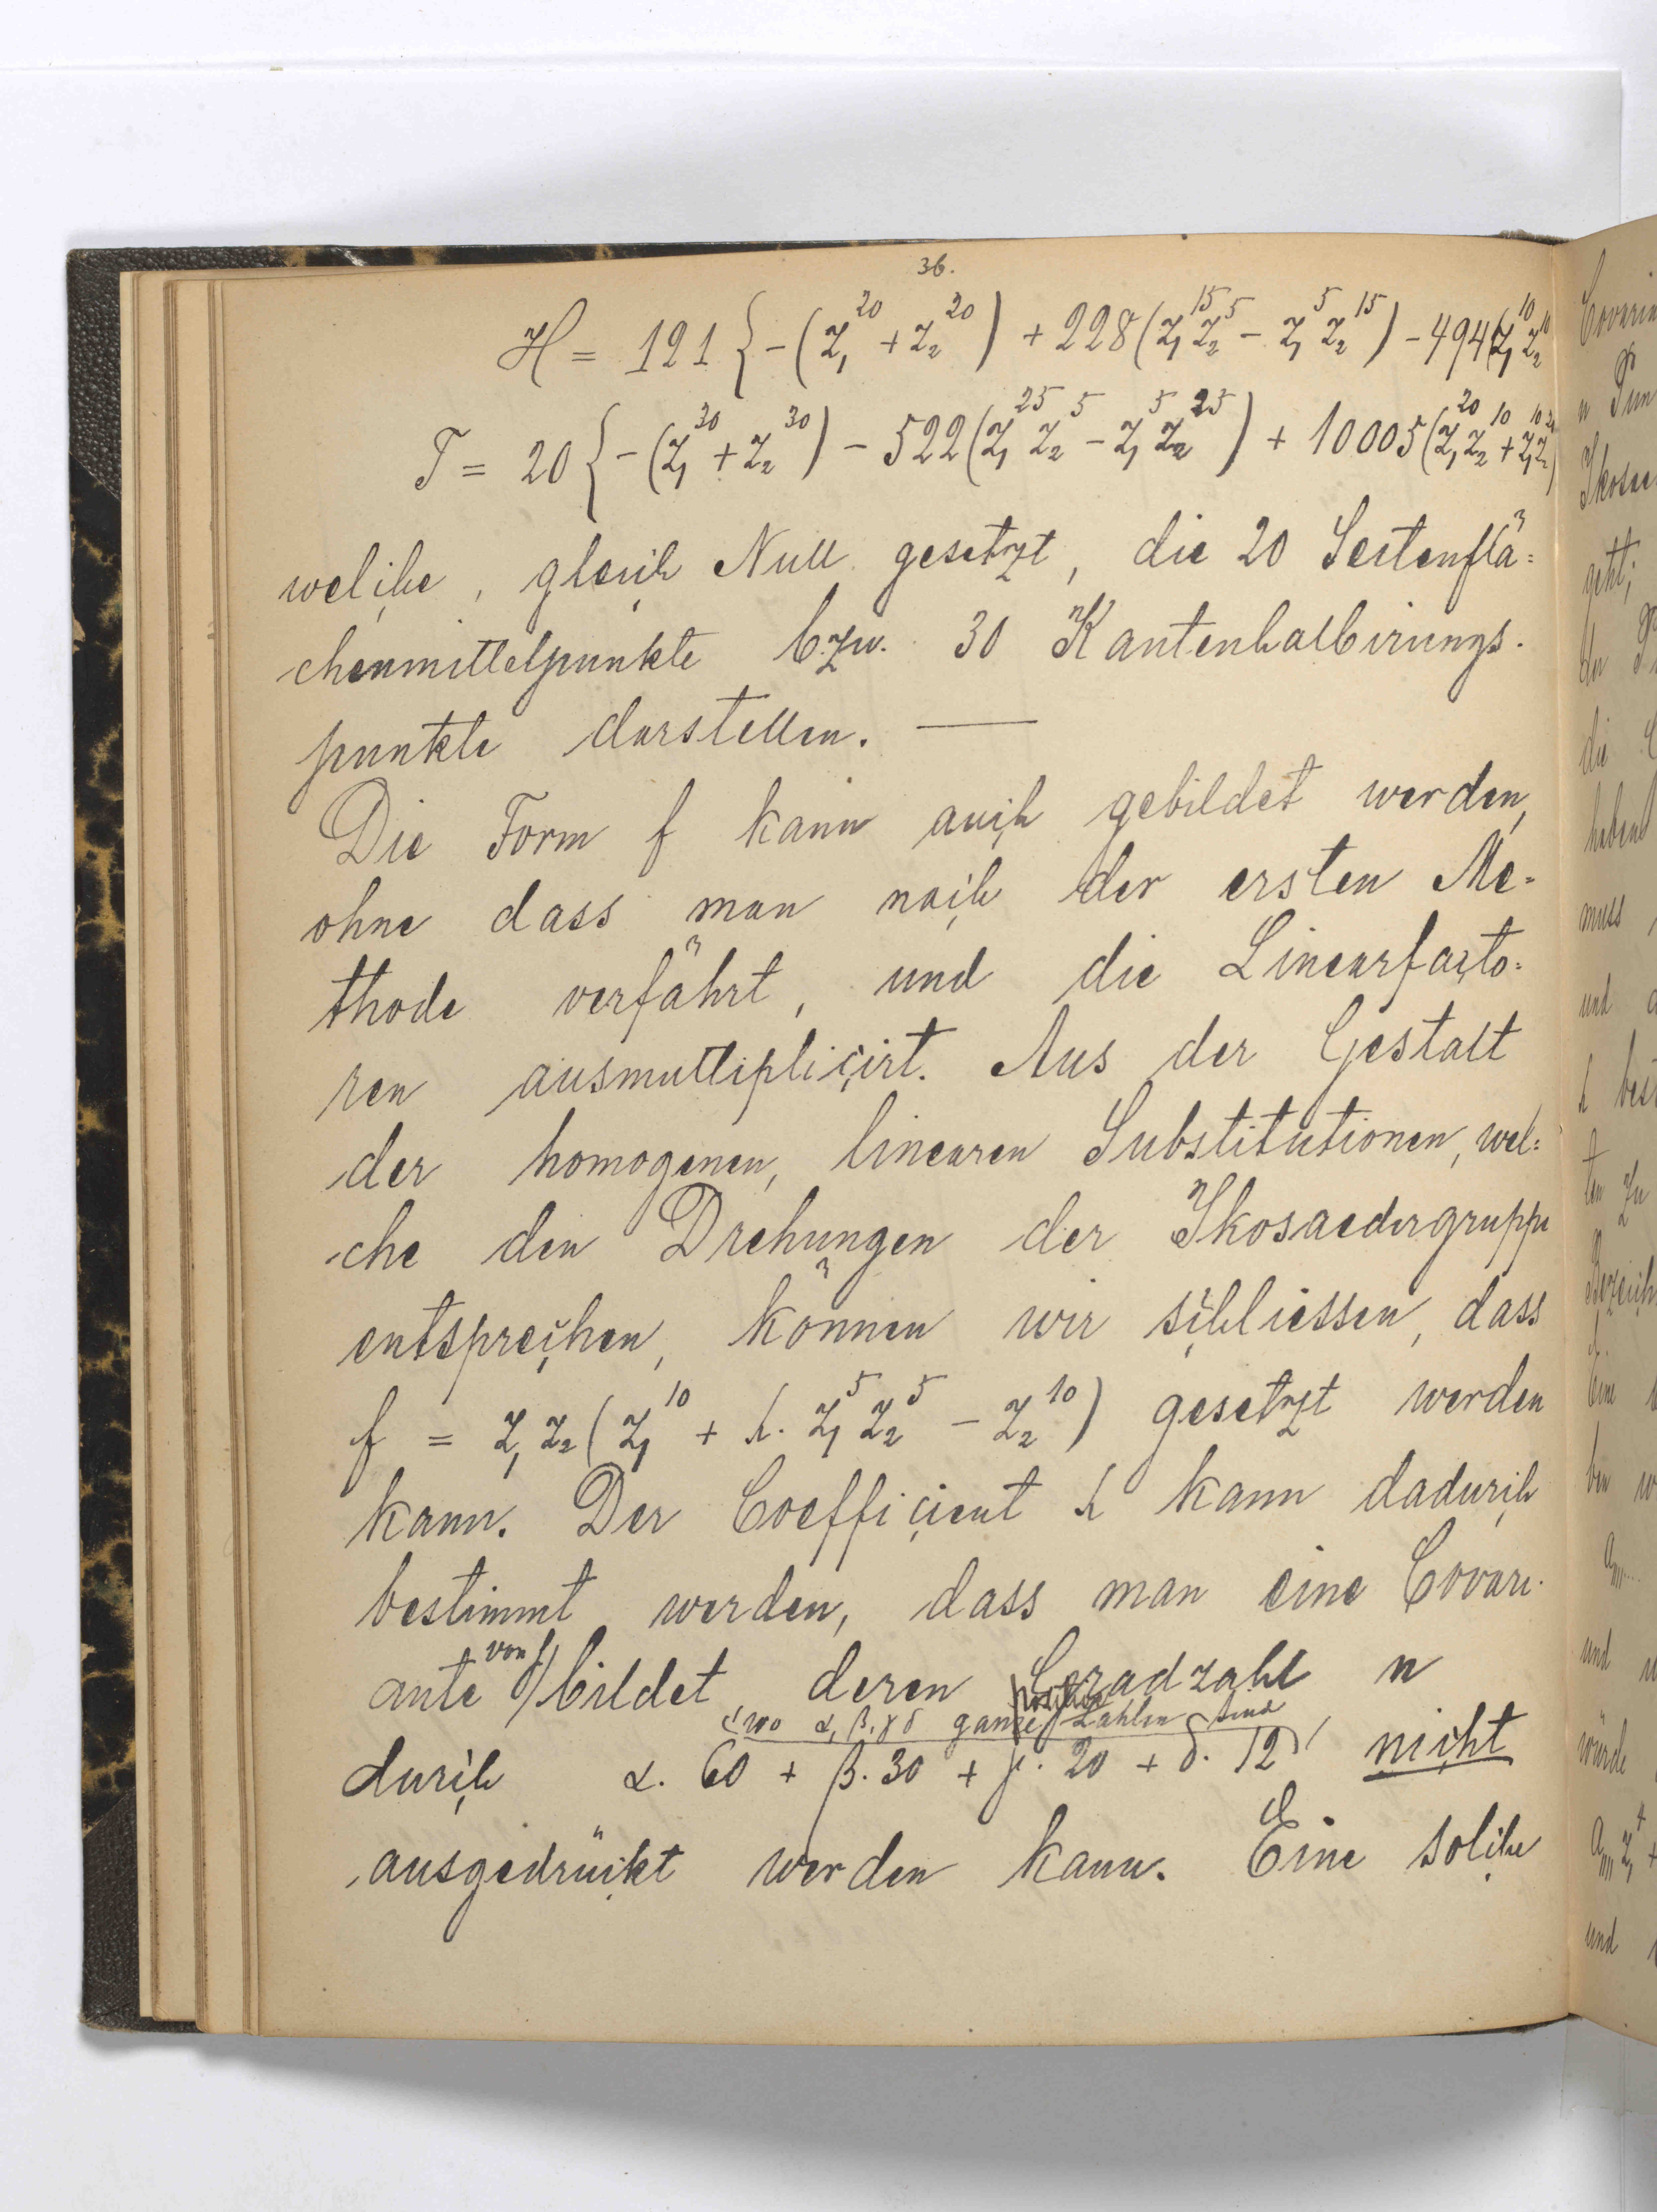 36.
H = 121 { -(z₁²⁰ + z₂²⁰) + 228(z₁¹⁵z₂⁵ - z₁⁵z₂¹⁵) - 494(z₁¹⁰z₂¹⁰
T = 20 { -(z₁³⁰ + z₂³⁰) - 522(z₁²⁵z₂⁵ - z₁⁵z₂²⁵) + 10005(z₁²⁰z₂¹⁰ + z₁¹⁰z₂²⁰)
welche, gleich Null gesetzt, die 20 Seitenflä=
chenmittelpunkte bzw. 30 Kantenhalbirungs-
punkte darstellen. —
Die Form f kann auch gebildet werden,
ohne dass man nach der ersten Me=
thode verfährt, und die Linearfacto=
ren ausmultiplicirt. Aus der Gestalt
der homogenen, linearen Substitutionen, wel=
che den Drehungen der Ikosaedergruppe
entsprechen, können wir schliessen, dass
f = z₁z₂(z₁¹⁰ + h. z₁⁵z₂⁵ - z₂¹⁰) gesetzt werden
kann. Der Coefficient h kann dadurch
bestimmt werden, dass man eine Covari-
ante von f bildet, deren Gradzahl n
(wo α, β, γ δ ganze positive Zahlen sind)
durch α. 60 + β. 30 + γ. 20 + δ. 12 nicht
ausgedrückt werden kann. Eine solche
Ikosae
geht;
die
muss,
und
h best
ten zu
und
würde
und